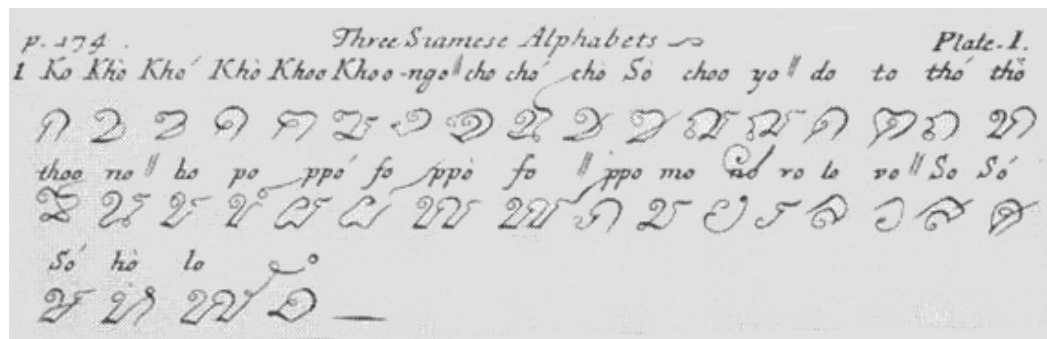 p. 174. Three Siamese Alphabets Plate. I.
1 Ko Khò Khó Khò Khoo Khoo -ngo || cho chó chò Sò choo yo || do to thó thò
ก ข ฃ ค ฅ ฆ ง จ ฉ ช ซ ฌ ญ ด ต ถ ท
thoo no || bo po ppó fo ppò fo || ppo mo ro lo vo || So Só
ธ น บ ป ผ ฝ พ ฟ ภ ม ย ร ล ว ส ศ
Só hò lo
ษ ห ฬ อ